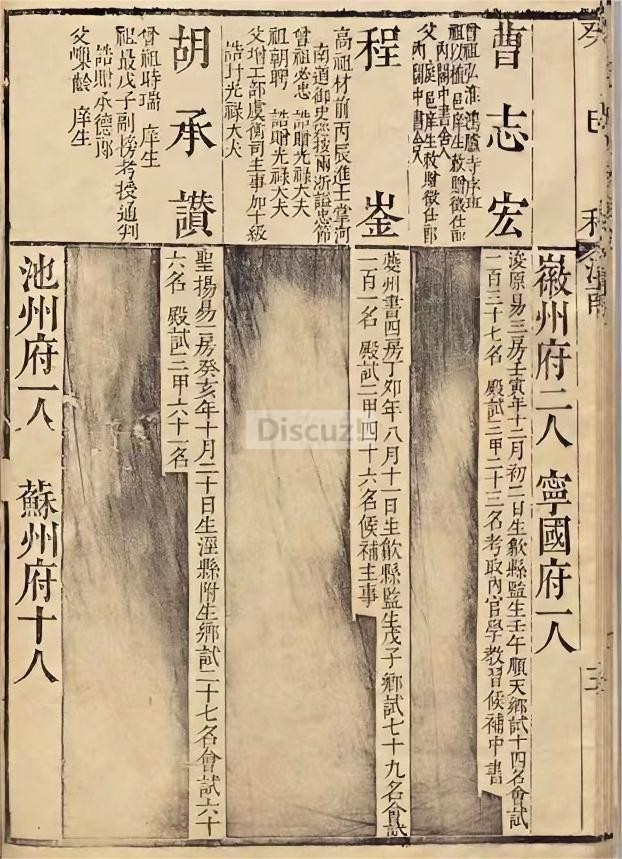 徽州府二人 寧國府一人
曹志宏
曾祖弘淮 鴻臚寺序班
祖以植 邑庠生敕贈徵仕郎
内閣中書舍人
父 庭 邑庠生敕贈徵仕郎
内閣中書舍人
浚原易三房壬寅年十二月初二日生歙縣監生壬午順天鄉試十四名會試
一百三十七名 殿試三甲二十三名考取內官學教習候補中書
程崟
高祖材前丙辰進士掌河
南道御史巡按兩浙諡忠節
曾祖必忠 誥贈光祿大夫
祖朝聘 誥贈光祿大夫
父增工部虞衡司主事加十級
誥封光祿大夫
夔州書四房丁卯年八月十一日生歙縣監生戊子鄉試七十九名會試
一百一名 殿試二甲四十六名候補主事
胡承讚
曾祖時瑞 庠生
祖最戊子副榜考授通判
誥贈承德郎
父嶼齡 庠生
聖揚易一房癸亥年十月二十日生涇縣附生鄉試二十七名會試六十
六名 殿試三甲六十一名
池州府一人 蘇州府十人
Discuz!